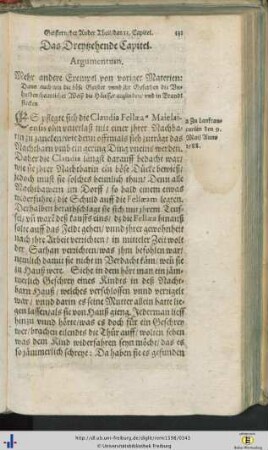 Geistern/ der Ander Theil/ das 13. Capitel. 331
Das Dreyzehende Capitel.
Argumentum.
Mehr andere Exempel von voriger Materien:
Dann auch von die böse Geister vnnd jhr Gesinden die
heimlicher Weiß die Häusser anzünden/ vnd in Brandt
stecken.
ES pflegte sich die Claudia Fellæa a Maielai-
a Zu Lanfrancurtin den 9. Maij Anno 1588.
nis ein zancken/ wie denn offtmals sich zuträgt das
Nachtbarn vmb ein gering Ding vneins werden.
Daher die Claudia längst darauff bedacht war/
wie sie jhrer Nachtbarin ein böse Dück beweise/
jedoch muß sie solches heimlich thun: Denn alle
Nachtbawrn im Dorff/ so bald einem etwas
widerführe/ die Schuld auff die Fellæam legten.
Derhalben berathschlagt sie sich mit jhrem Teuf-
fel/ vñ ward deß kauffs eins/ daß die Fellæa hinauß
solte auff das Feld gehen/ vnnd jhrer gewohnheit
nach jhre Arbeit verrichten/ in mitteler Zeit wolt
der Sathan verrichten/ was jhm befohlen war/
nemlich damit sie nicht in Verdacht käm/ weil sie
zu Hauß were. Siehe in dem hört man ein jäm-
merlich Geschrey eines Kindts in deß Nacht-
barn Hauß/ welches verschlossen vnnd verrigelt
war/ vnnd darin es seine Mutter allein hatte lie-
gen lassen/ als sie von Hauß gieng. Jederman lieff
hinzu vnnd hörte was es doch für ein Geschrey
wer/ brachen eilendes die Thür auff/ wolten sehen
was dem Kind widerfahren seyn möcht/ das es
so jämmerlich schreye: Da haben sie es gefunden
http://dl.ub.uni-freiburg.de/diglit/remi1598/0342
© Universitätsbibliothek Freiburg